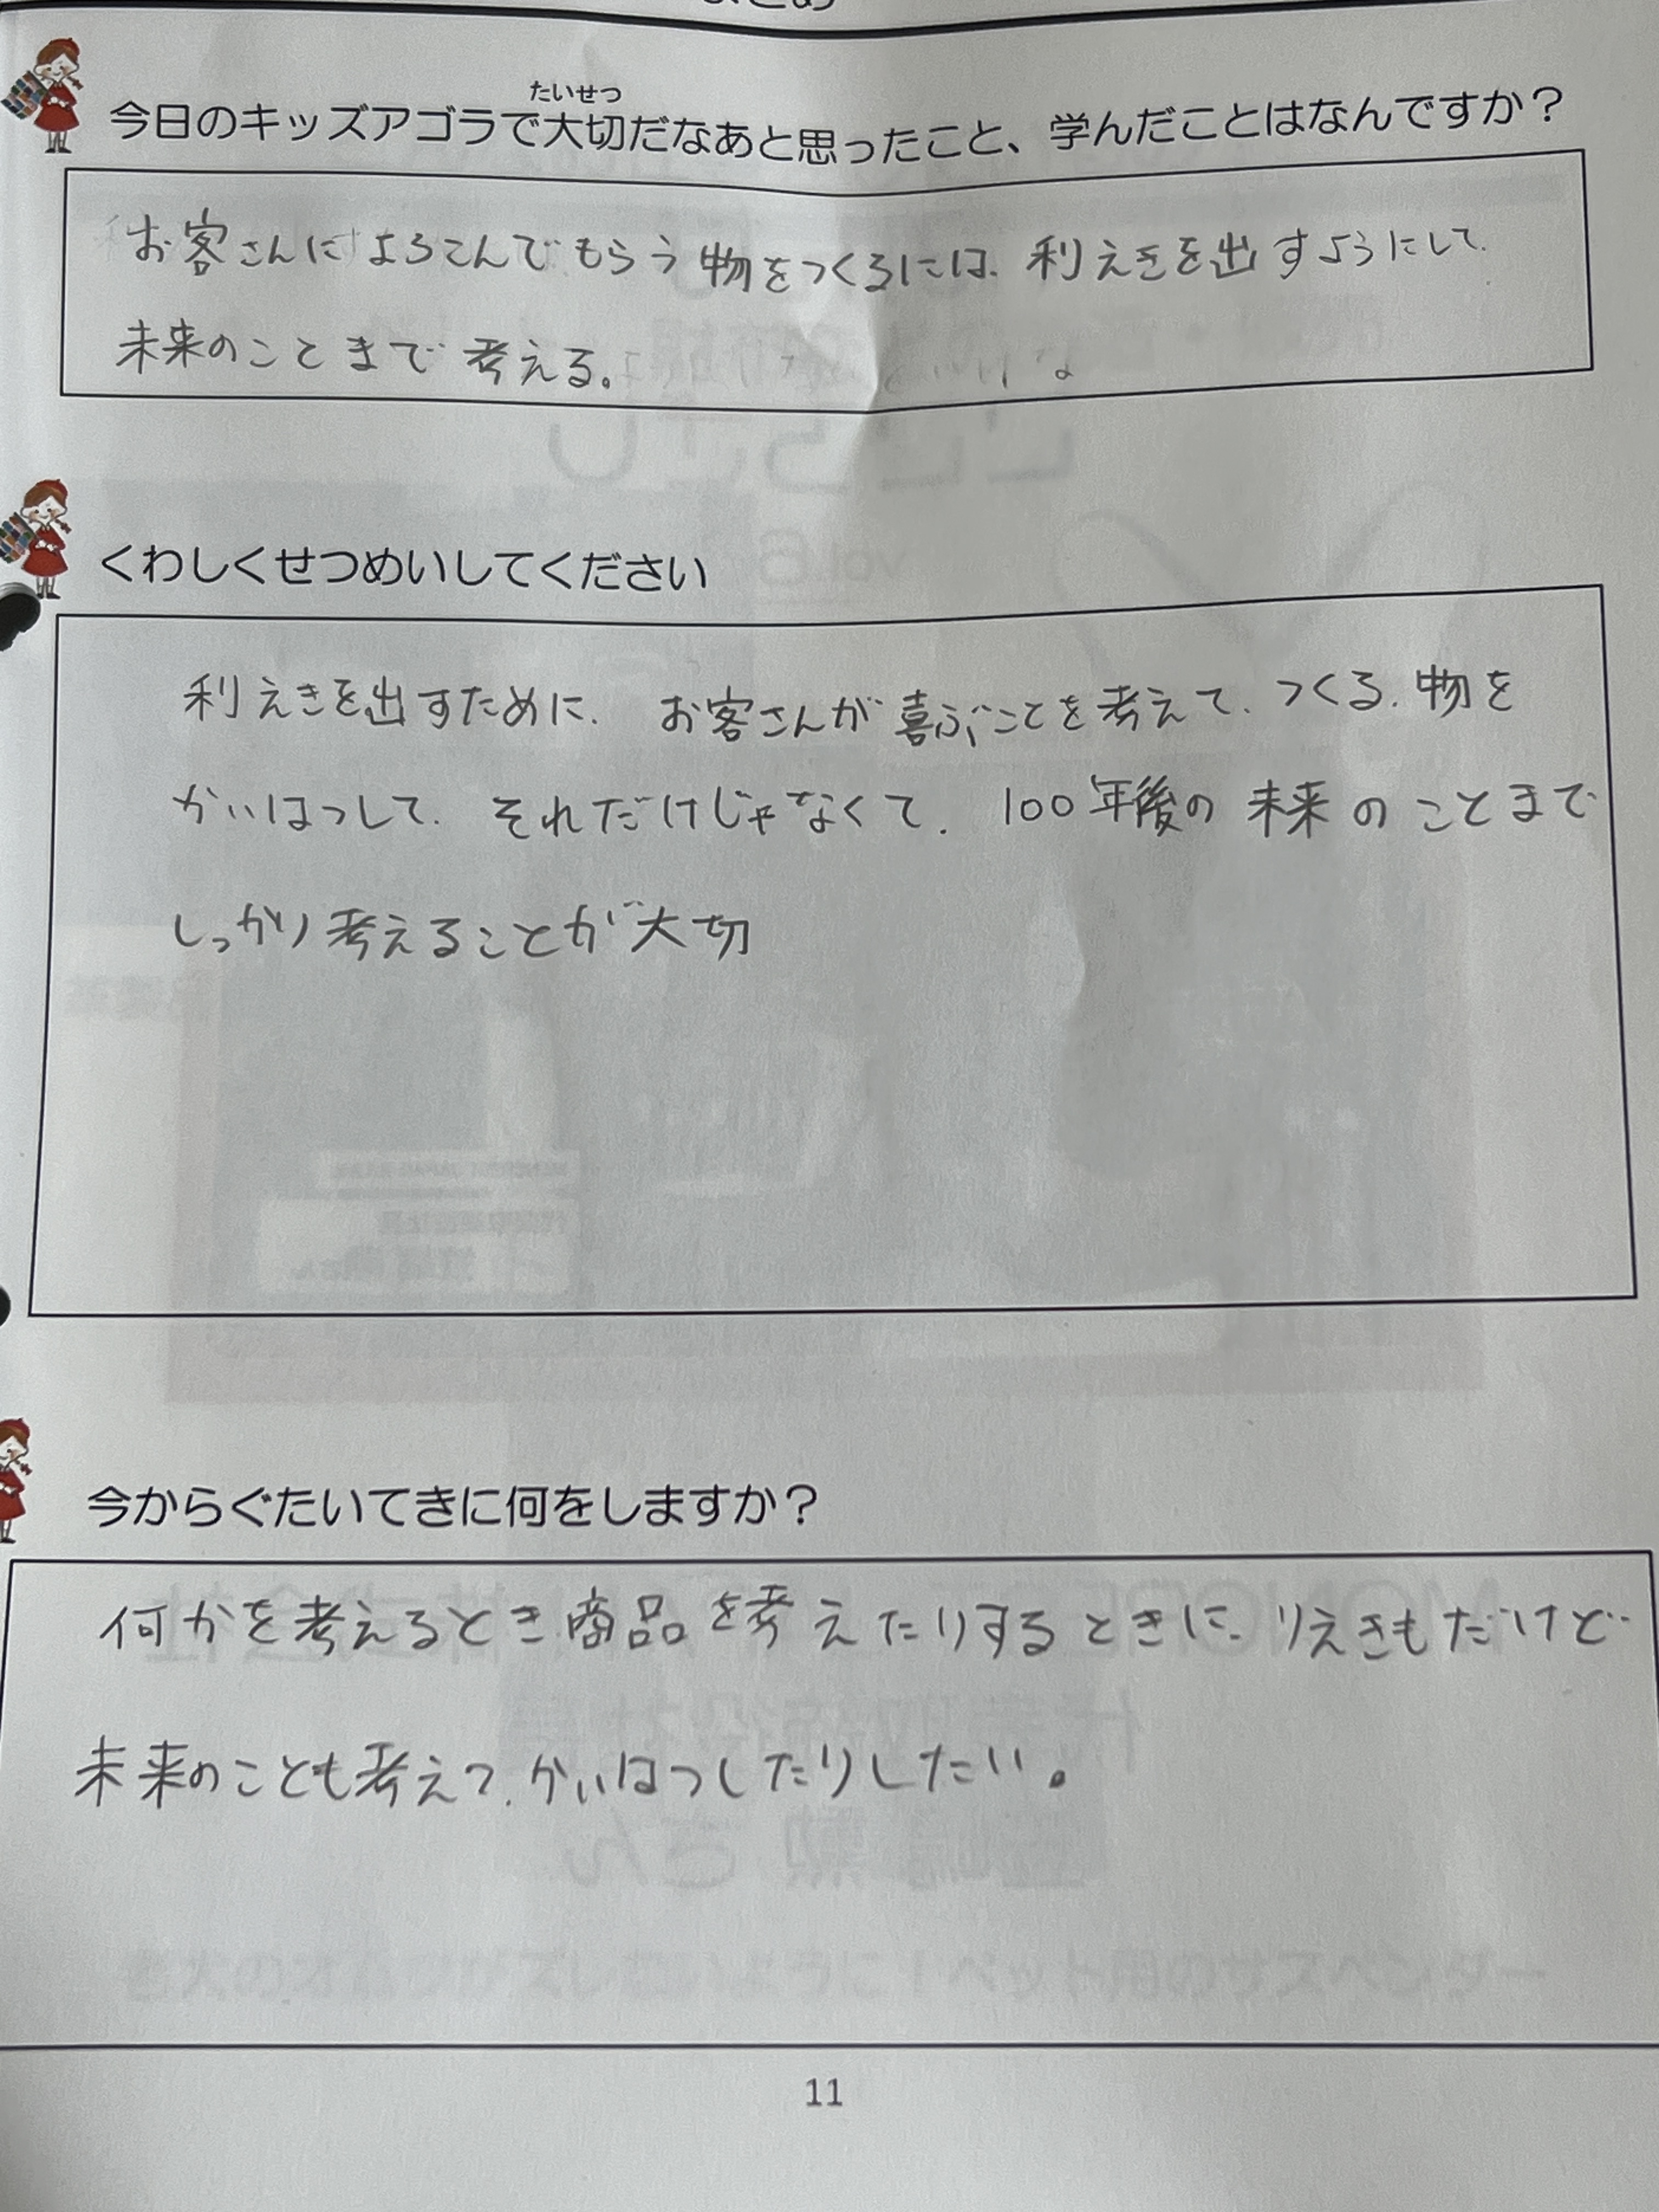 たいせつ
今日のキッズアゴラで大切だなあと思ったこと、学んだことはなんですか？
お客さんによろこんでもらう物をつくるには、利えきを出すようにして、
未来のことまで考える。
くわしくせつめいしてください
利えきを出すために、お客さんが喜ぶことを考えて、つくる、物を
かいはつして、それだけじゃなくて、100年後の未来のことまで
しっかり考えることが大切
今からぐたいてきに何をしますか？
何かを考えるとき商品を考えたりするときに、りえきもだけど
未来のことも考えて、かいはつしたりしたい。
11